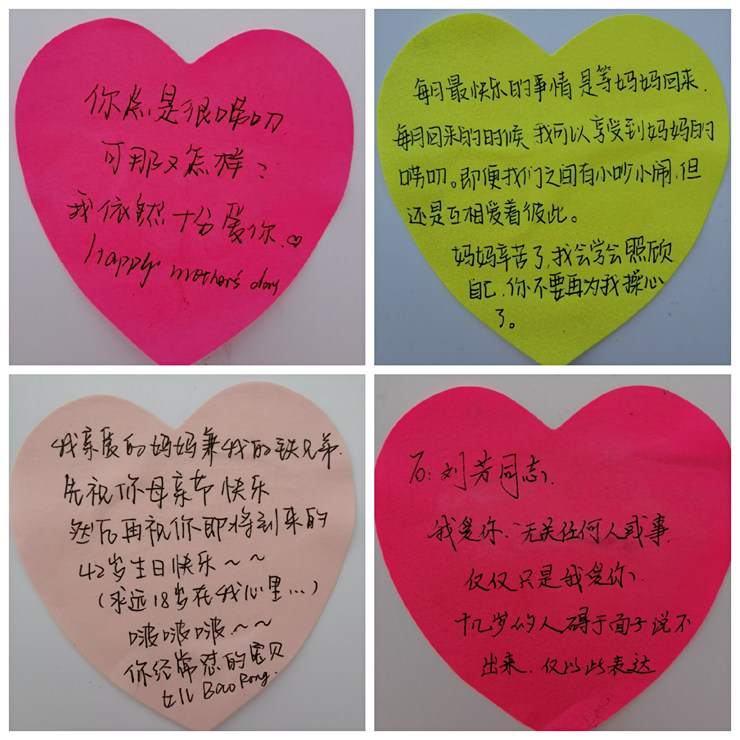 你总是很唠叨
可那又怎样？
我依然十分爱你.♡
happy mother's day
每月最快乐的事情是等妈妈回来.
每月回来的时候我可以享受到妈妈的
唠叨。即便我们之间有小吵小闹,但
还是互相爱着彼此。
妈妈辛苦了,我会学会照顾
自己,你不要再为我操心
了。
我亲爱的妈妈兼我的铁兄弟.
先祝你母亲节快乐
然后再祝你即将到来的
42岁生日快乐~~
(永远18岁在我心里...)
啵啵啵~~
你经常怼的宝贝
女儿 Bao Rong.
To: 刘芳同志.
我爱你、无关任何人或事.
仅仅只是我爱你、
十几岁的人碍于面子说不
出来,仅以此表达